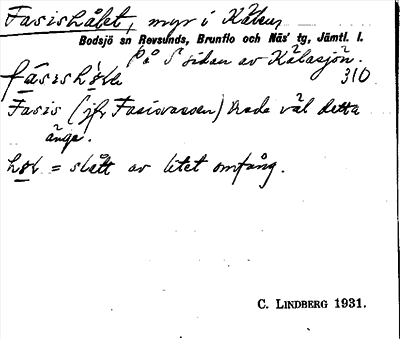 Fasishålet, myr i Kälen
Bodsjö sn Revsunds, Brunflo och Näs' tg, Jämtl. l.
På S sidan av Kälasjön.
310
Fasis (jfr Fasisvassen) hade väl detta
änge.
= slått av litet omfång.
C. LINDBERG 1931.